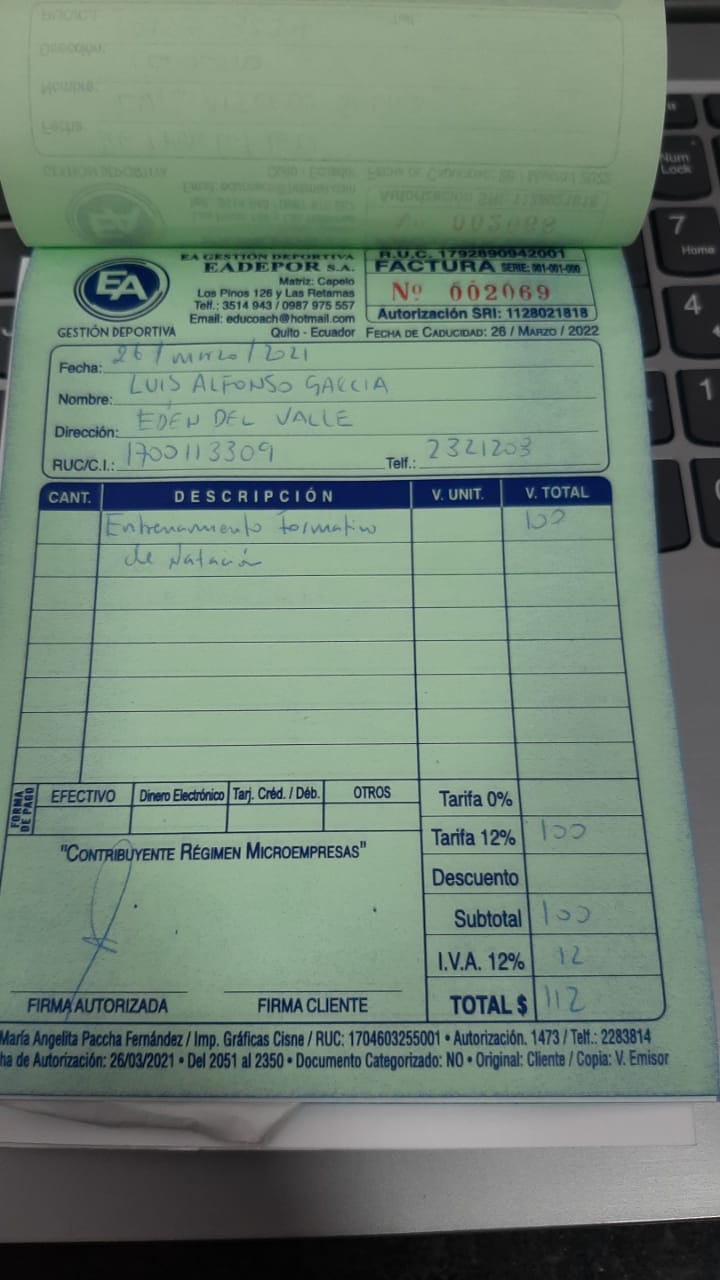 EA
GESTIÓN DEPORTIVA
EA GESTIÓN DEPORTIVA
EADEPOR S.A.
Matriz: Capelo
Los Pinos 126 y Las Retamas
Telf.: 3514 943 / 0987 975 557
Email: educoach@hotmail.com
Quito - Ecuador
R.U.C. 1792890942001
FACTURA SERIE: 001-001-000
Nº 002069
Autorización SRI: 1128021818
FECHA DE CADUCIDAD: 26 / MARZO / 2022
Fecha: 26 / marzo / 2021
Nombre: LUIS ALFONSO GARCIA
Dirección: EDÉN DEL VALLE
RUC/C.I.: 1700113309 Telf.: 2321203
CANT. DESCRIPCIÓN V. UNIT. V. TOTAL
Entrenamiento formativo 100
de Natación
FORMA DE PAGO
EFECTIVO Dinero Electrónico Tarj. Créd. / Déb. OTROS
"CONTRIBUYENTE RÉGIMEN MICROEMPRESAS"
Tarifa 0%
Tarifa 12% 100
Descuento
Subtotal 100
I.V.A. 12% 12
TOTAL $ 112
FIRMA AUTORIZADA FIRMA CLIENTE
María Angelita Paccha Fernández / Imp. Gráficas Cisne / RUC: 1704603255001 • Autorización. 1473 / Telf.: 2283814
ha de Autorización: 26/03/2021 • Del 2051 al 2350 • Documento Categorizado: NO • Original: Cliente / Copia: V. Emisor
Num
Lock
7
Home
4
1